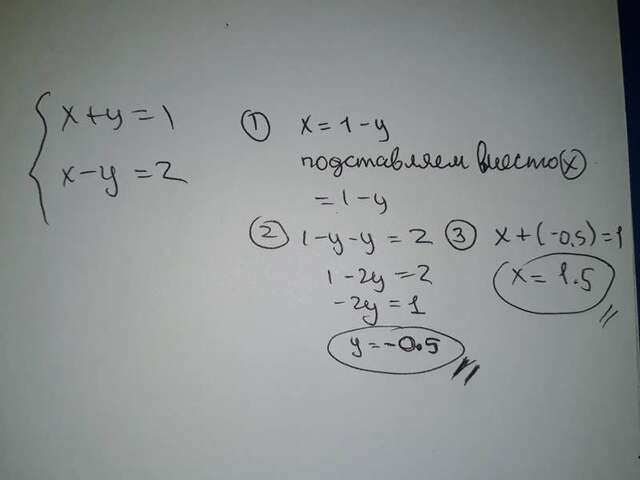 x+y=1
x-y=2
① x=1-y
подставляем вместо x
=1-y
② 1-y-y=2
1-2y=2
-2y=1
y=-0.5
③ x+(-0.5)=1
x=1.5